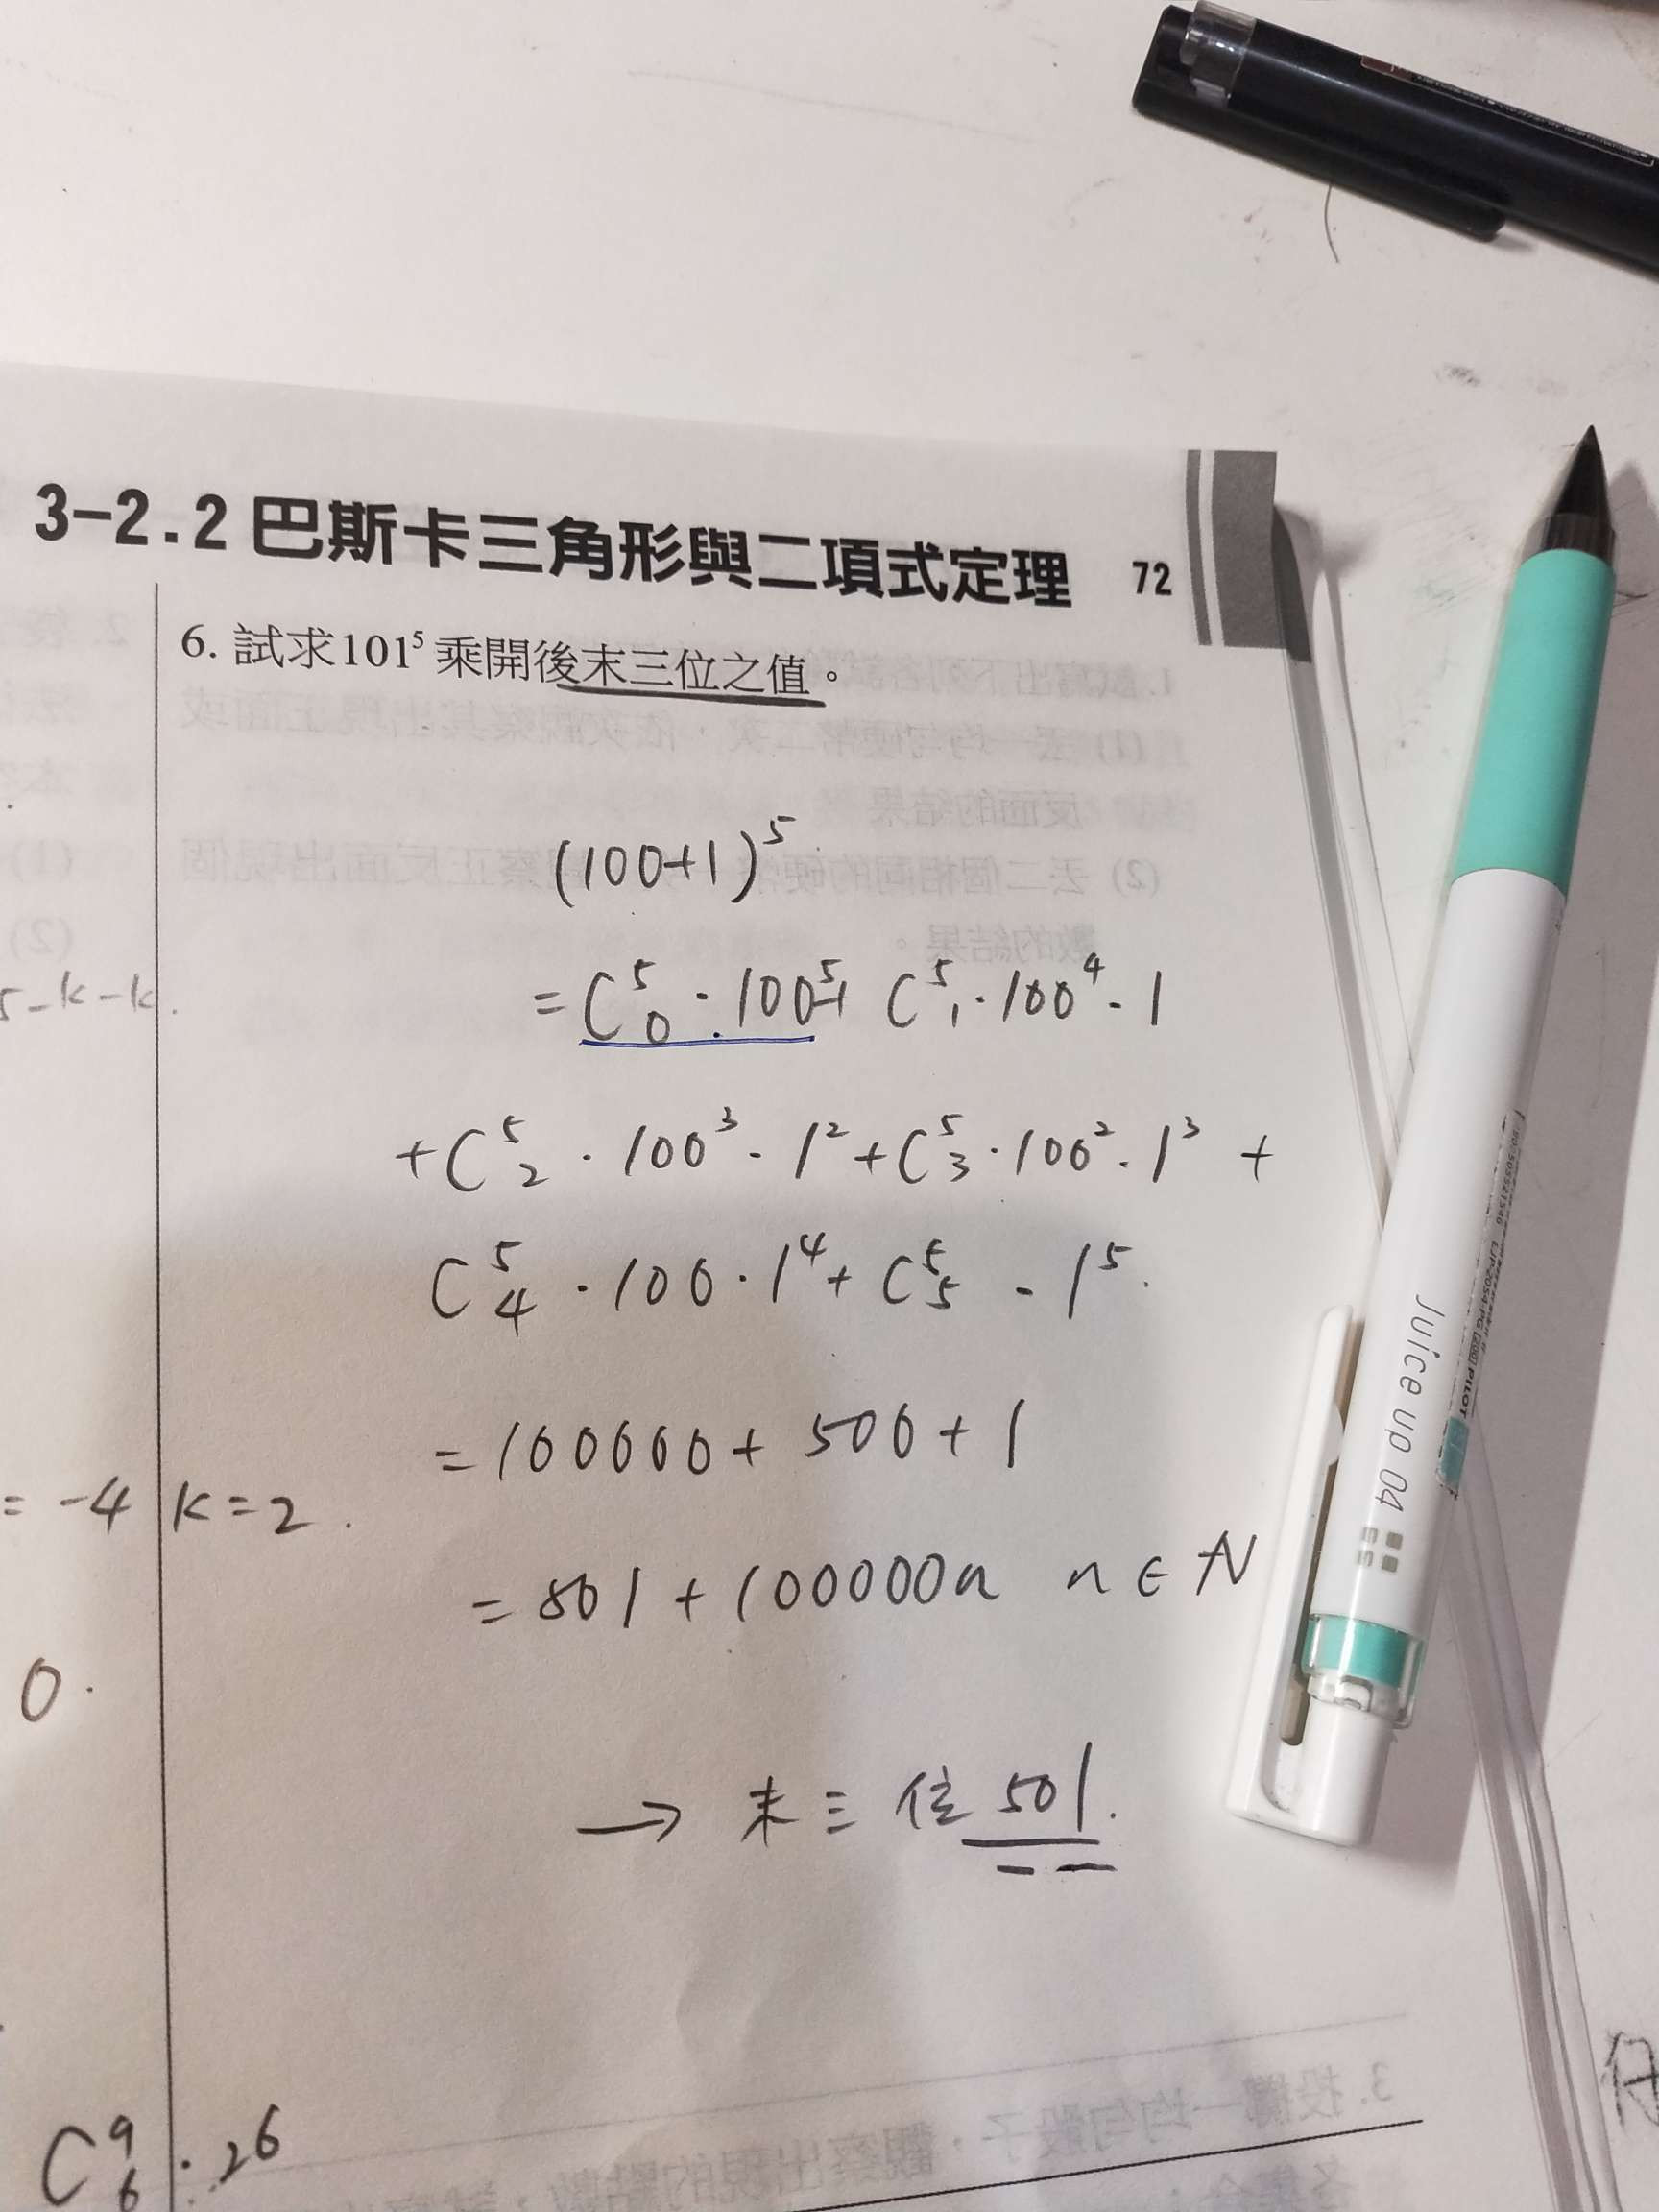 3-2.2 巴斯卡三角形與二項式定理 72
6. 試求101⁵ 乘開後末三位之值。
(100+1)⁵
= C⁵₀ · 100⁵ + C⁵₁ · 100⁴ · 1
+ C⁵₂ · 100³ · 1² + C⁵₃ · 100² · 1³ +
C⁵₄ · 100 · 1⁴ + C⁵₅ · 1⁵
= 100000 + 500 + 1
= 501 + 100000n n ∈ N
→ 末三位 501.
5-k-k.
= -4 k=2.
0.
C⁹₆ · 2⁶
Juice up 04
PILOT